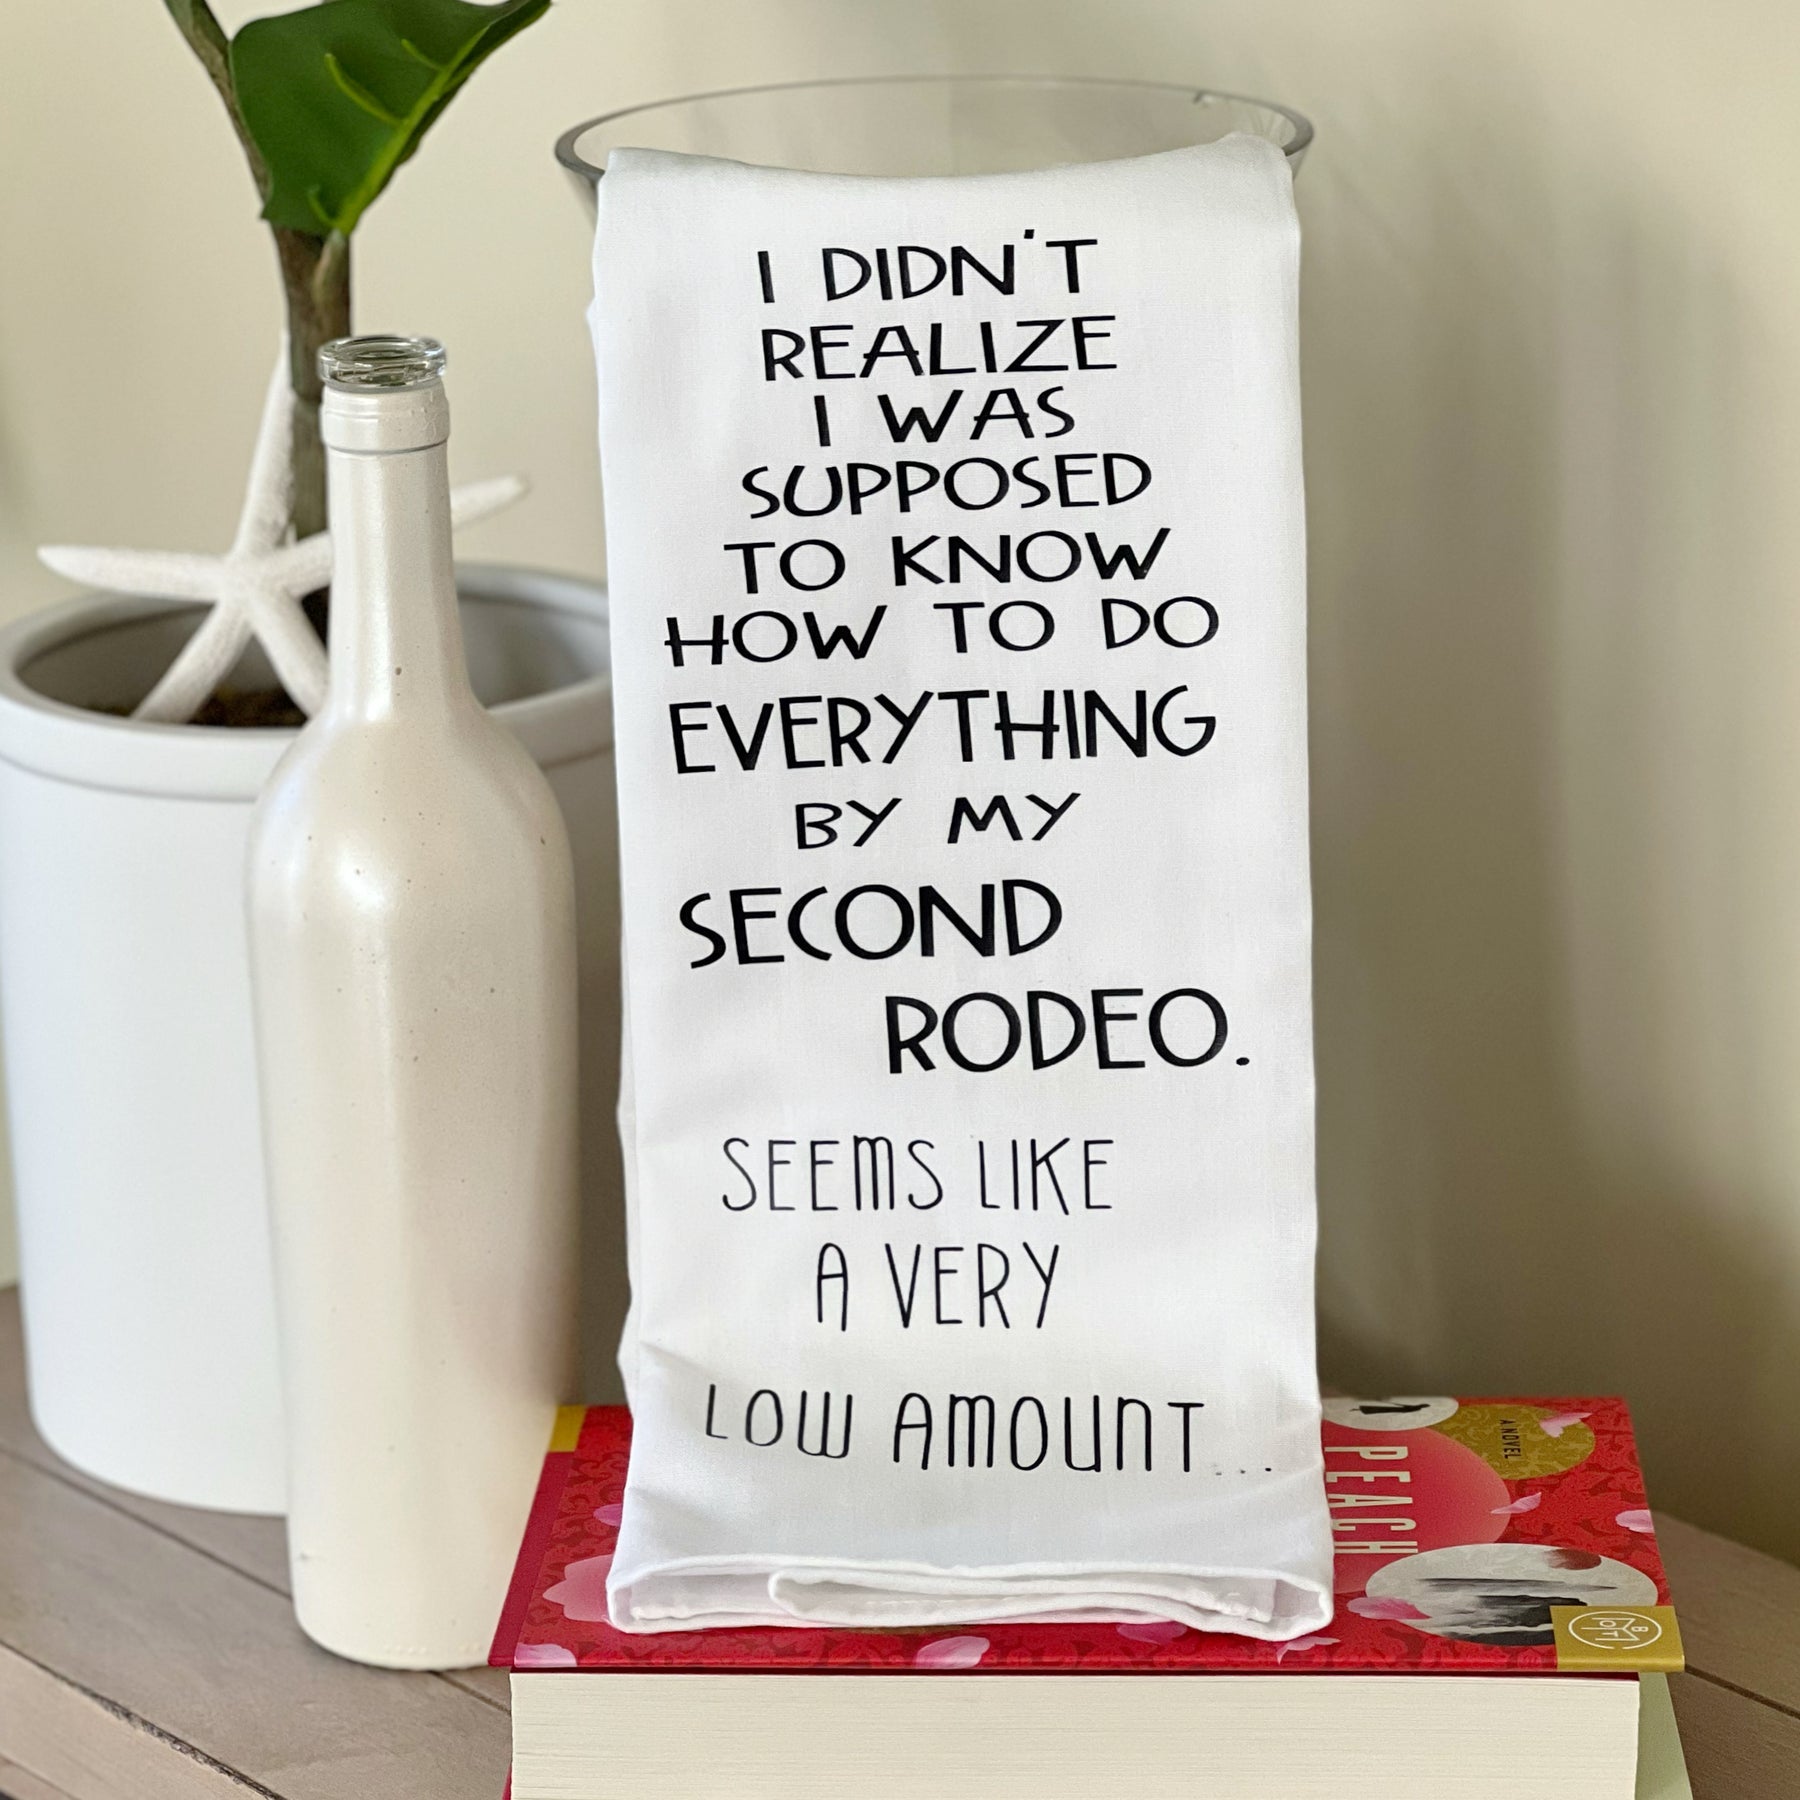 I DIDN'T
REALIZE
I WAS
SUPPOSED
TO KNOW
HOW TO DO
EVERYTHING
BY MY
SECOND
RODEO.
SEEMS LIKE
A VERY
LOW AMOUNT...
PEACH
A NOVEL
BOTM